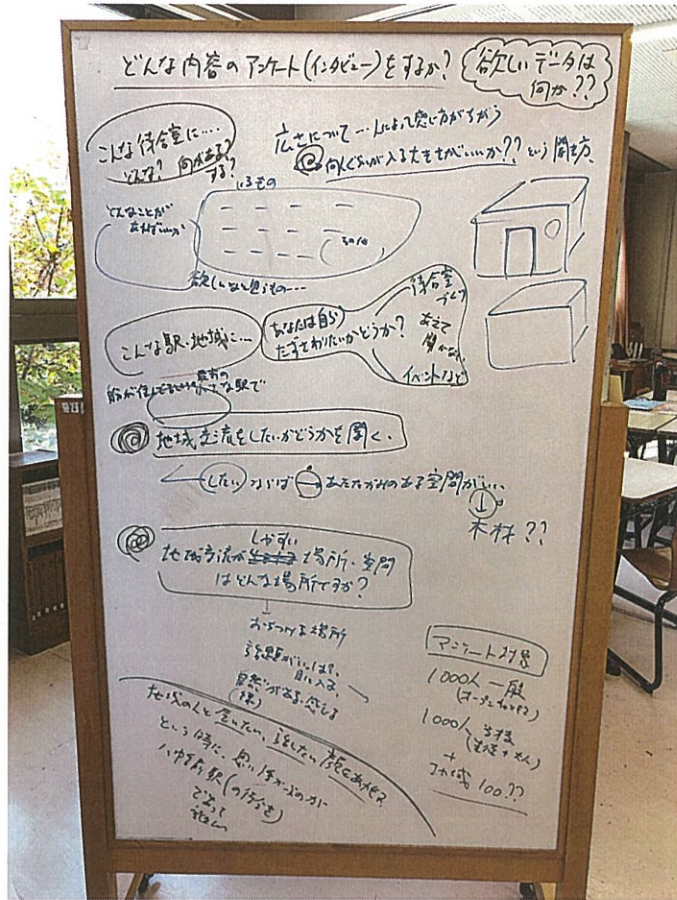 どんな内容のアンケート(インタビュー)をするか?
欲しいデータは
何か??
こんな待合室に....
どんな? 何がある?
する?
広さについて…人によって感じ方がちがう
何人ぐらいが入る大きさがいいか??という聞き方、
いるもの
どんなことが
あればいいか
その他
欲しいなと思うもの...
こんな駅・地域に…
あなたは自ら
たずさわりたいかどうか?
待合室
づくり
あえて
聞かない
イベントなど
小さな駅で
地域交流をしたいかどうかを聞く、
したい ならば あたたかみのある空間がいい、
木材??
しやすい
地域交流が 場所・空間
はどんな場所ですか?
おちつける場所
話題がいっぱい、
目に入る、
自然がある・感じる
(緑)
地域の人と会いたい、話をしたい 顔をあわせる
という時に、思い浮かぶのが
八幡前駅(の待合室)
であって
ほしい
アンケート対象
1000人 一般
1000人 学校
(生徒+大人)
+
地域 100??